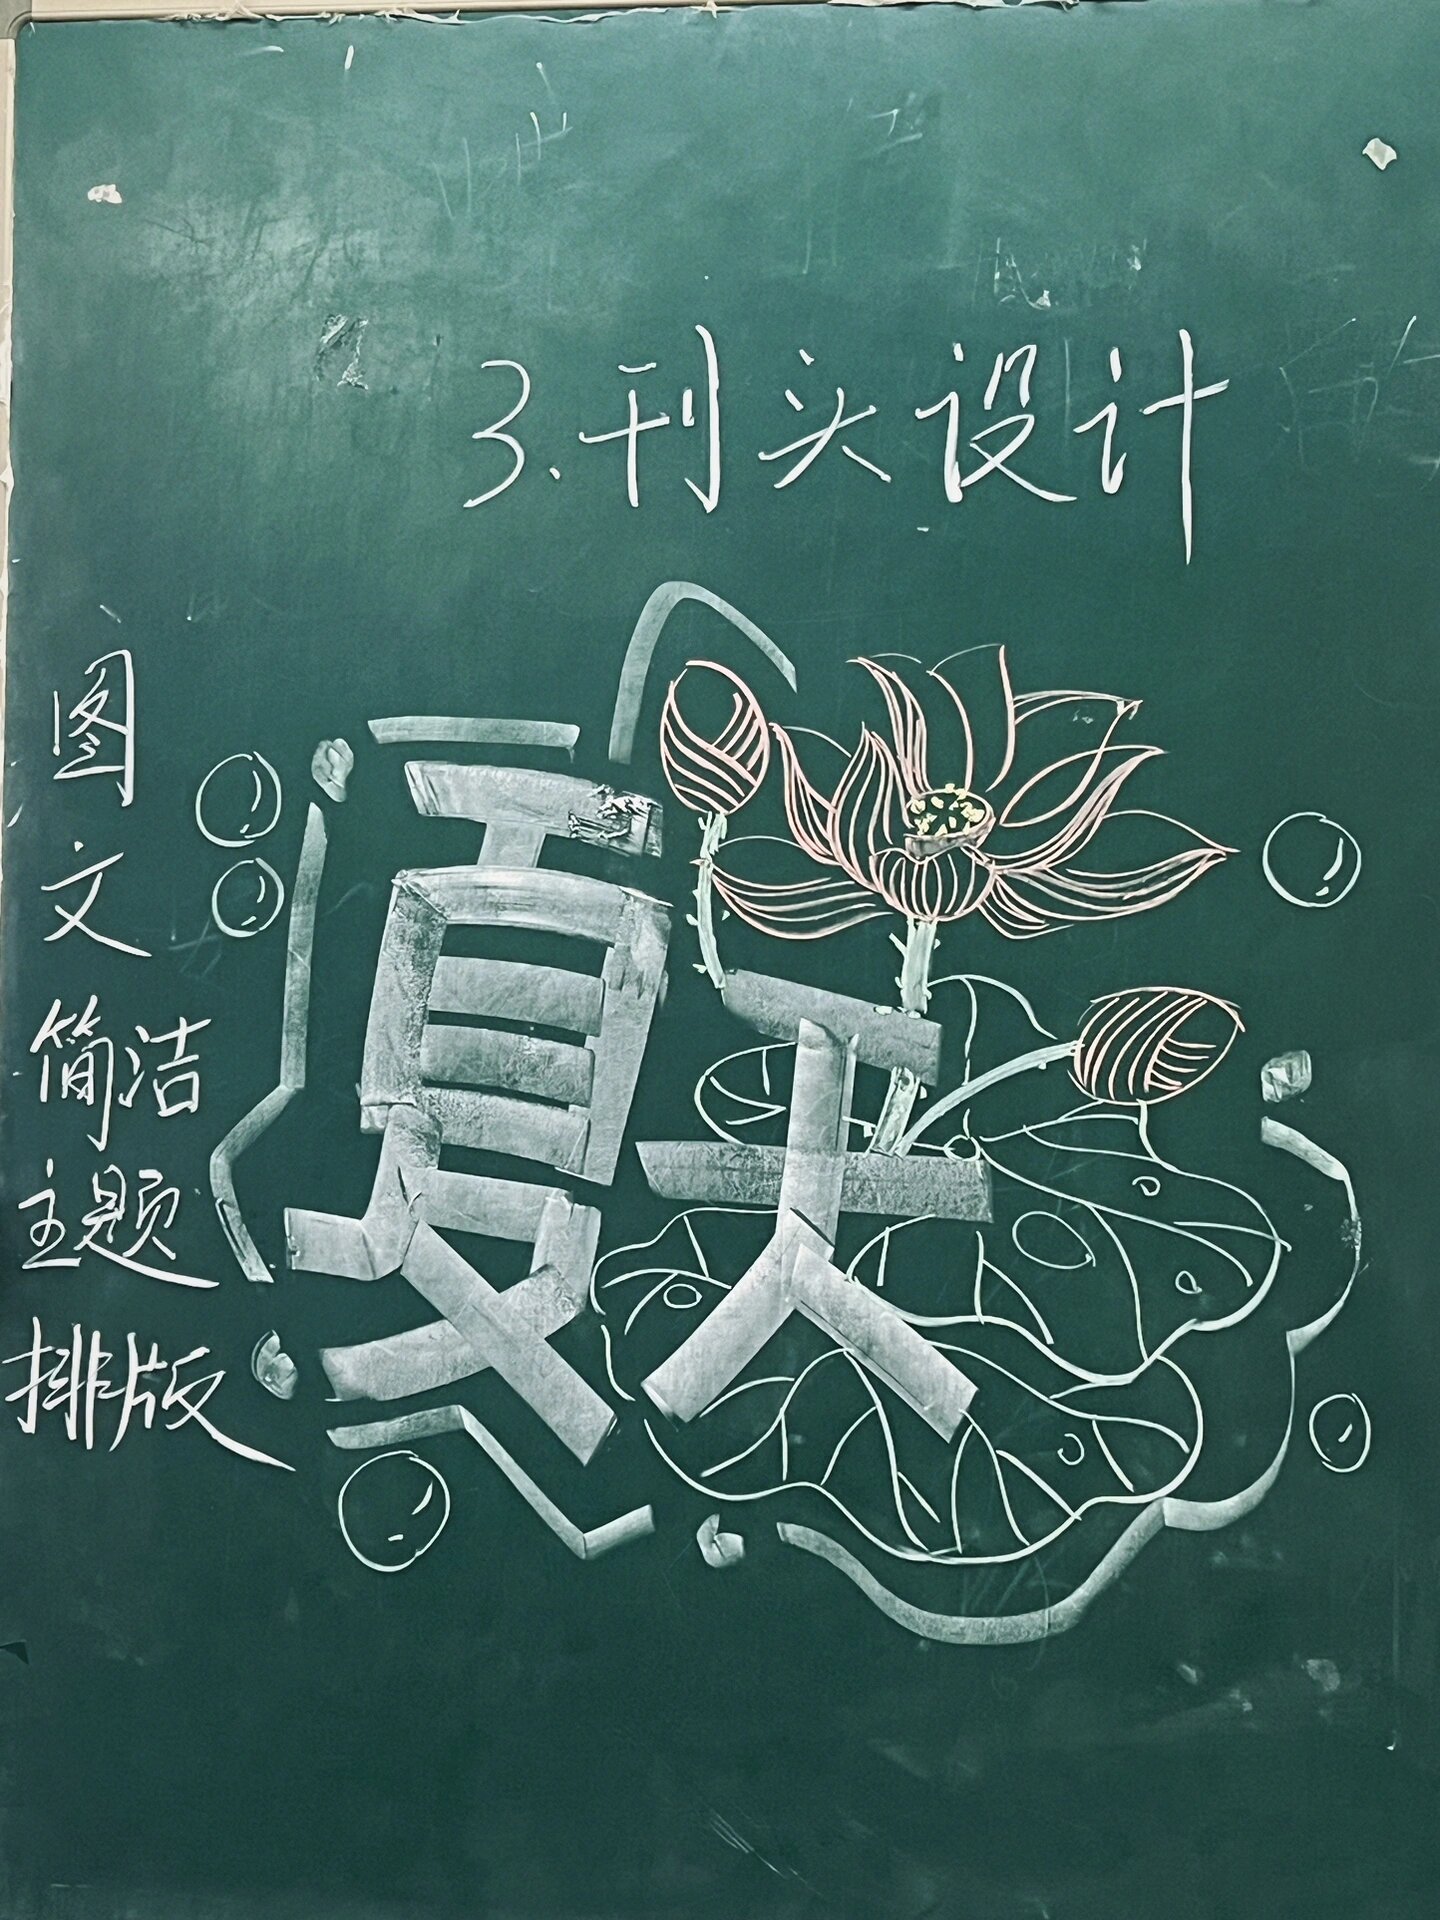 3.刊头设计
图
文
简洁
主题
排版
夏天